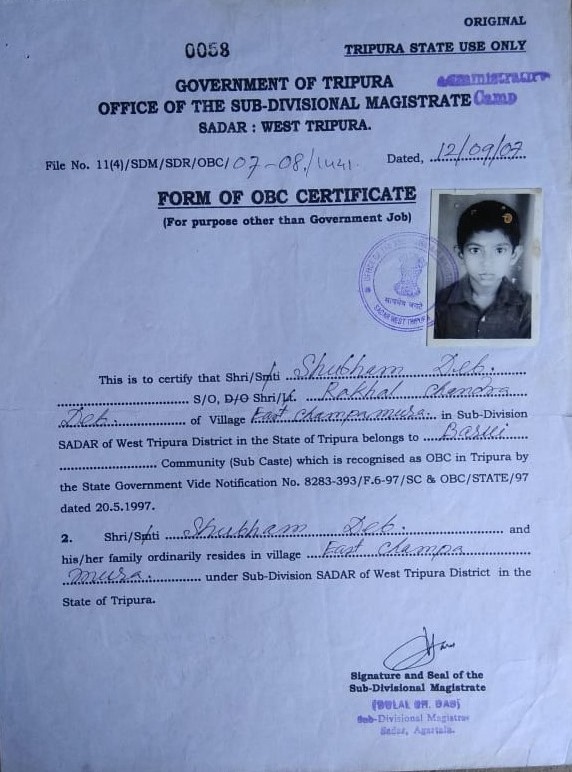 ORIGINAL
0058
TRIPURA STATE USE ONLY
GOVERNMENT OF TRIPURA
Administrative
OFFICE OF THE SUB-DIVISIONAL MAGISTRATE Camp
SADAR : WEST TRIPURA.
File No. 11(4)/SDM/SDR/OBC/07-08/1441. Dated, 12/09/07
FORM OF OBC CERTIFICATE
(For purpose other than Government Job)
सत्यमेव जयते
SADAR WEST TRIPURA
This is to certify that Shri/Smti Shubham Deb.
S/O, D/O Shri/Lt. Rakhal Chandra
Deb. of Village East Champamura. in Sub-Division
SADAR of West Tripura District in the State of Tripura belongs to Barui
Community (Sub Caste) which is recognised as OBC in Tripura by
the State Government Vide Notification No. 8283-393/F.6-97/SC & OBC/STATE/97
dated 20.5.1997.
2. Shri/Smti Shubham Deb. and
his/her family ordinarily resides in village East Champa
mura. under Sub-Division SADAR of West Tripura District in the
State of Tripura.
Signature and Seal of the
Sub-Divisional Magistrate
(DULAL CH. DAS)
Sub-Divisional Magistrate
Sadar, Agartala.